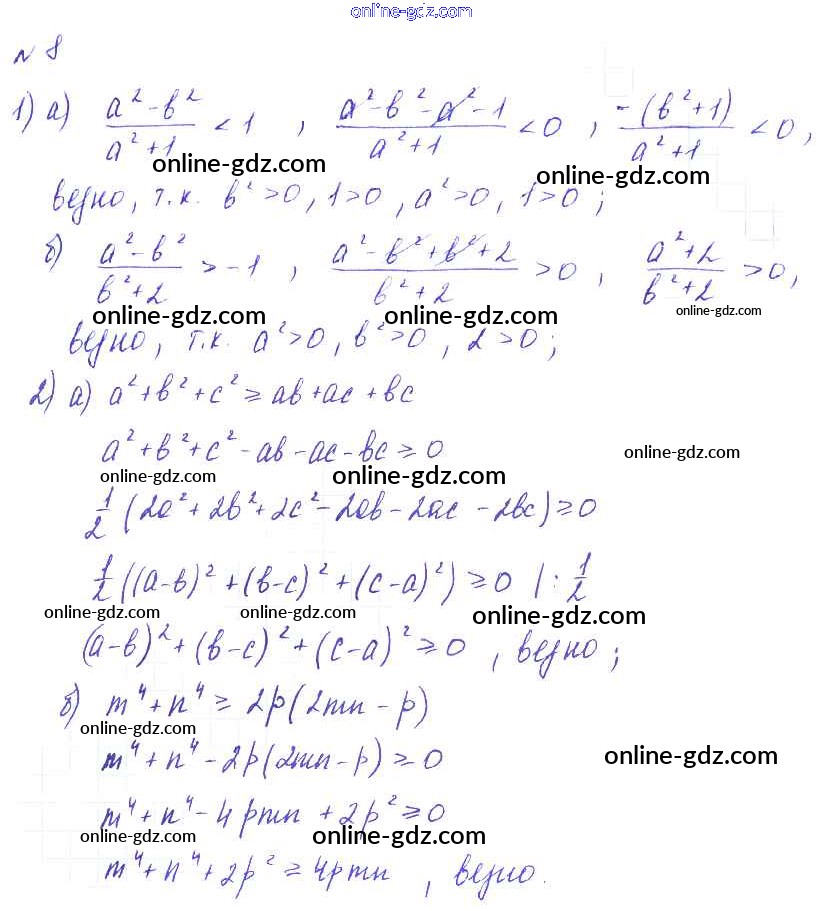 online-gdz.com
№ 8
1) а) (a² - b²)/(a² + 1) < 1 , (a² - b² - a² - 1)/(a² + 1) < 0 , (-(b² + 1))/(a² + 1) < 0,
online-gdz.com online-gdz.com
верно, т.к. b² > 0, 1 > 0, a² > 0, 1 > 0;
б) (a² - b²)/(b² + 2) > -1 , (a² - b² + b² + 2)/(b² + 2) > 0 , (a² + 2)/(b² + 2) > 0,
online-gdz.com online-gdz.com online-gdz.com
верно, т.к. a² > 0, b² > 0, 2 > 0;
2) а) a² + b² + c² ≥ ab + ac + bc
a² + b² + c² - ab - ac - bc ≥ 0
online-gdz.com online-gdz.com online-gdz.com
1/2 (2a² + 2b² + 2c² - 2ab - 2ac - 2bc) ≥ 0
1/2 ((a-b)² + (b-c)² + (c-a)²) ≥ 0 |: 1/2
online-gdz.com online-gdz.com online-gdz.com
(a-b)² + (b-c)² + (c-a)² ≥ 0 , верно;
б) m⁴ + n⁴ ≥ 2p(2mn - p)
online-gdz.com
m⁴ + n⁴ - 2p(2mn - p) ≥ 0
online-gdz.com
m⁴ + n⁴ - 4pmn + 2p² ≥ 0
online-gdz.com online-gdz.com
m⁴ + n⁴ + 2p² ≥ 4pmn , верно.